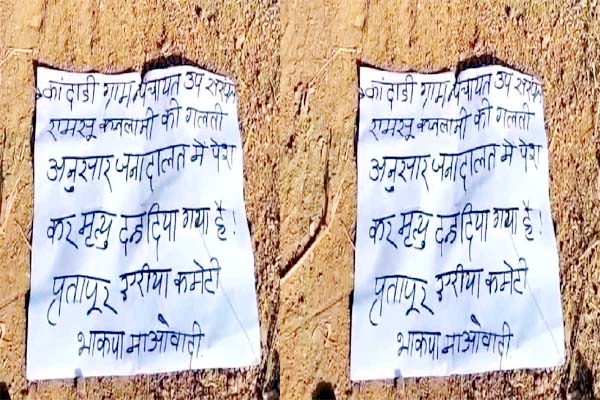 कांदाडी ग्राम पंचायत उप सरपंच
रामसू कजलामी की गलती
अनुसार जनादालत में पेश
कर मृत्यु दन्ड दिया गया है!
प्रतापूर एरीया कमेटी
भाकपा माओवादी.
कांदाडी ग्राम पंचायत उप सरपंच
रामसू कजलामी की गलती
अनुसार जनादालत में पेश
कर मृत्यु दन्ड दिया गया है!
प्रतापूर एरीया कमेटी
भाकपा माओवादी.